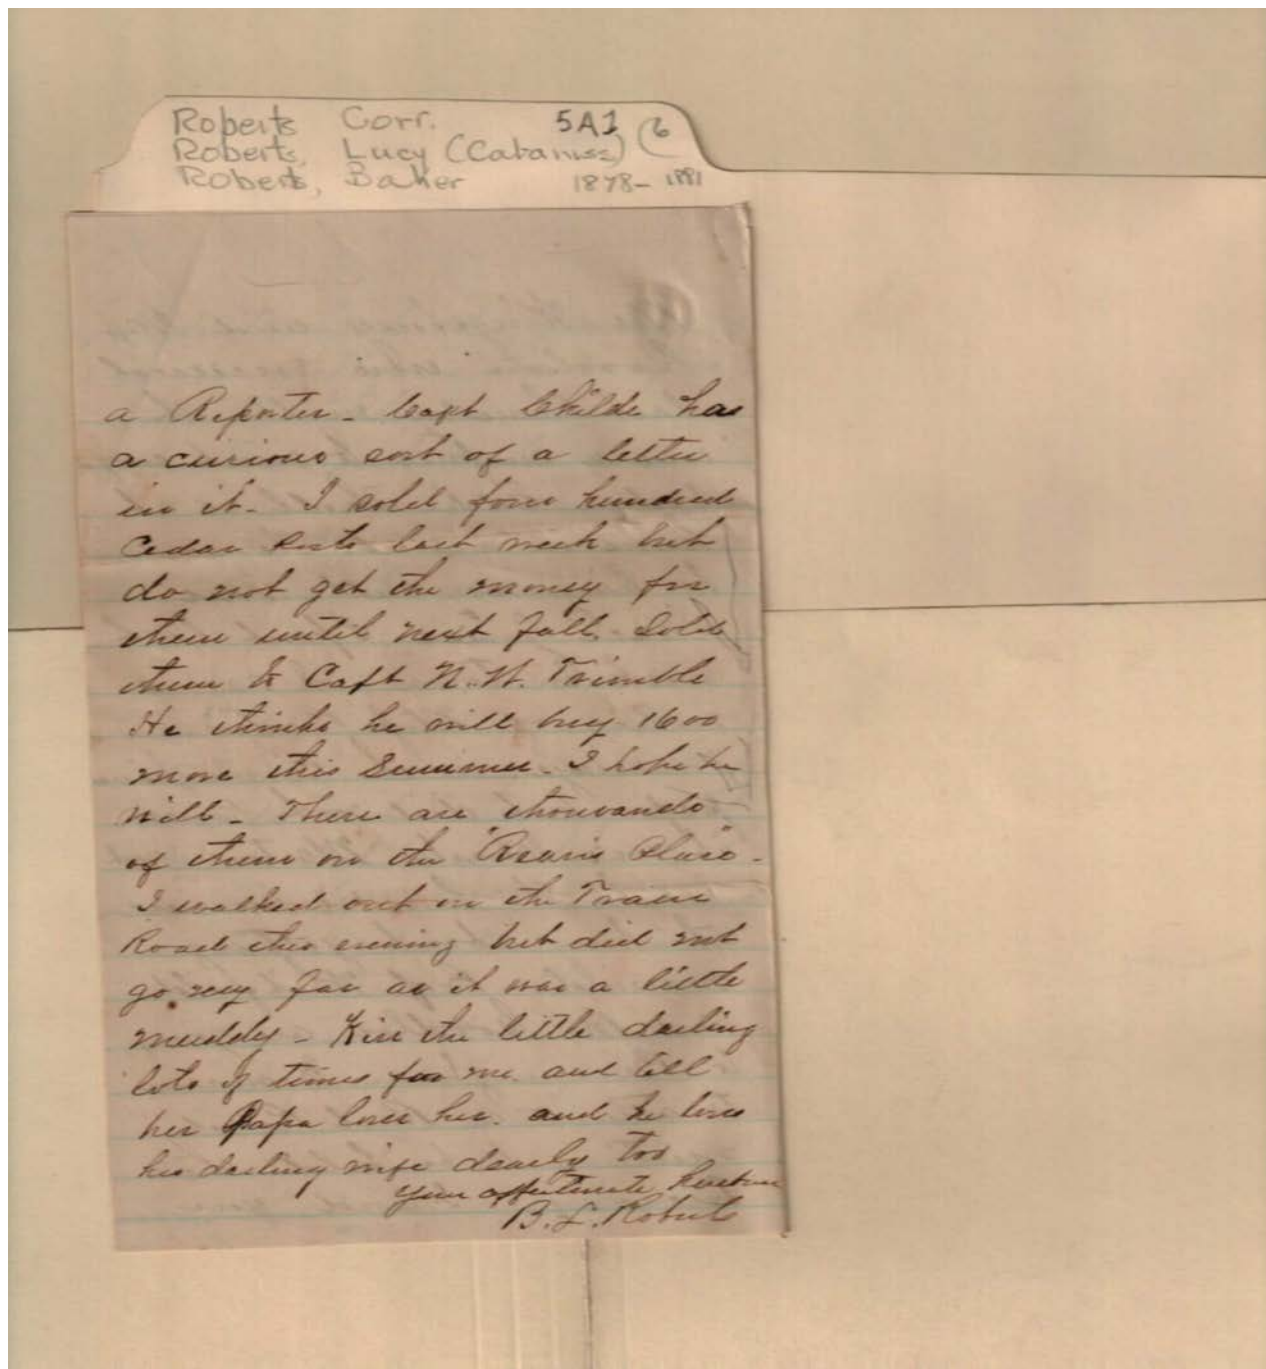 Roberts Corr. 5A1 (6
Roberts, Lucy (Cabaniss)
Roberts, Baker 1878-1881
a Reporter - Capt Childs has
a curious sort of a letter
in it - I sold four hundred
Cedar Posts last week but
do not get the money for
them until next fall. Sold
them to Capt N. W. Trimble
He thinks he will buy 1600
more this Summer - I hope he
will - There are thousands
of them on the " Place" -
I walked out on the
Road this evening but did not
go very far as it was a little
muddy - Kiss the little darling
lots of times for me and tell
her Papa loves her. and he loves
his darling wife dearly too
Your affectionate husband
B. L. Roberts